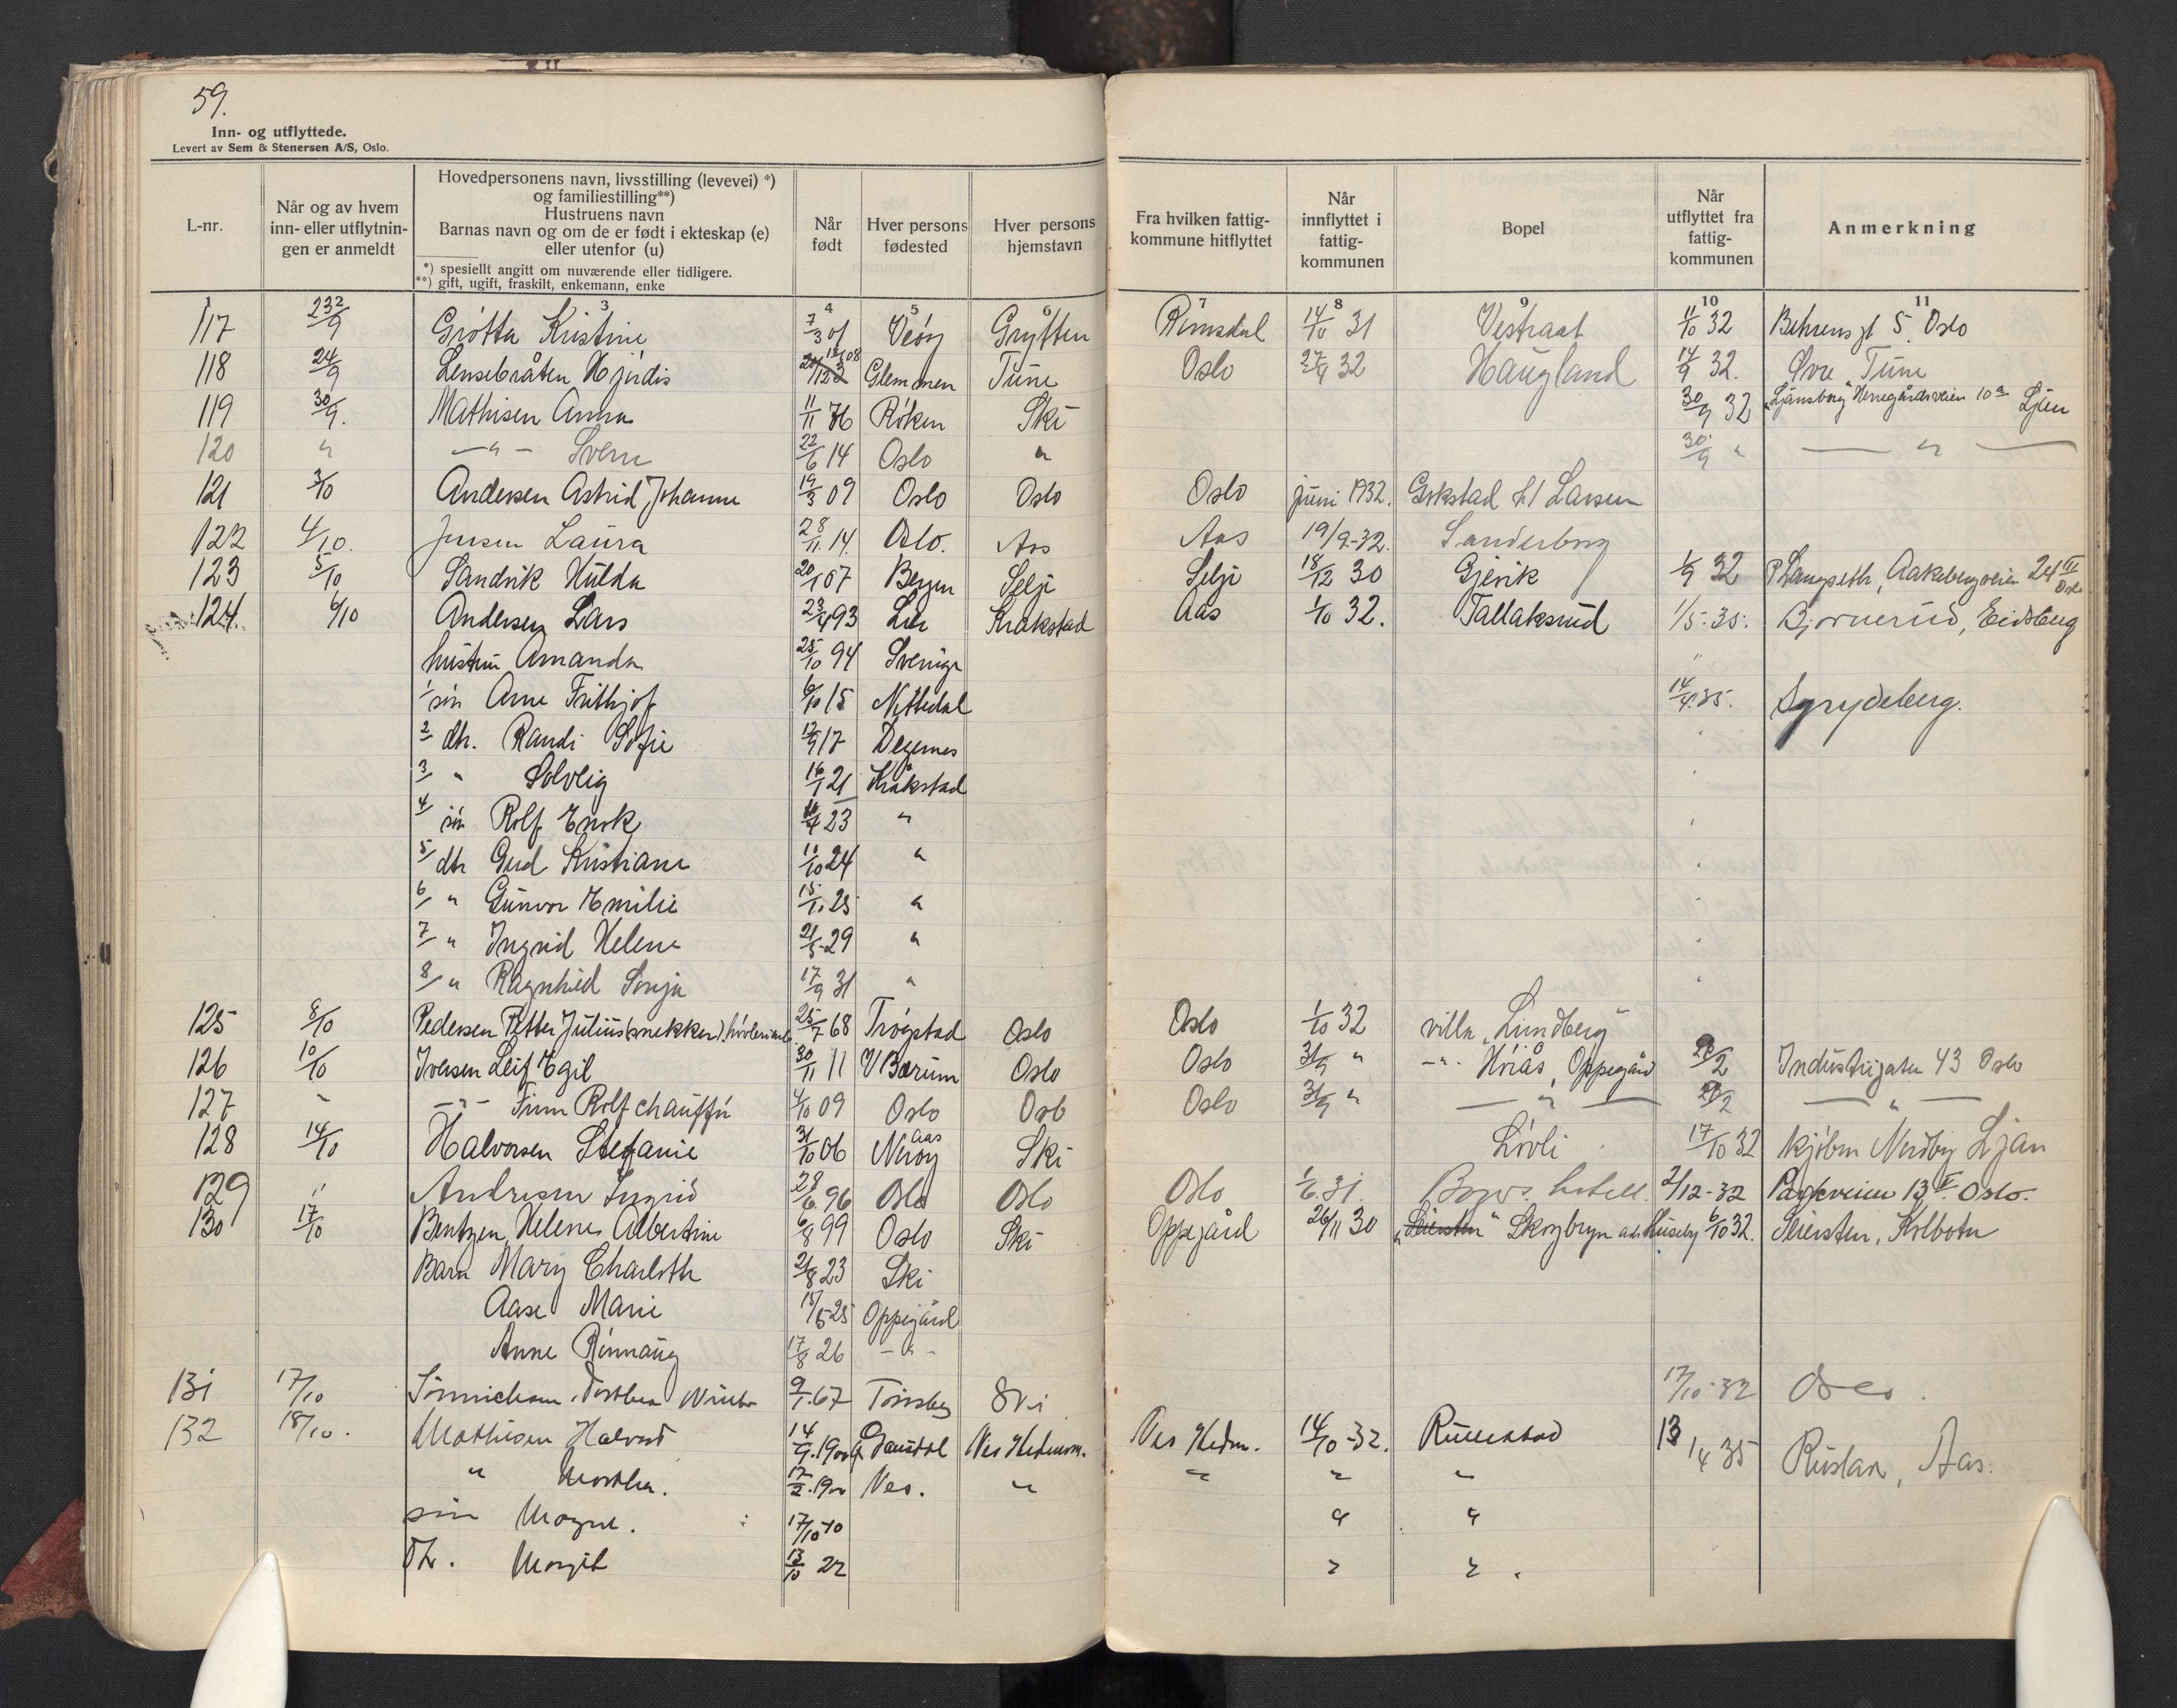 59.
Inn- og utflyttede.
Levert av Sem & Stenersen A/S, Oslo.
L-nr.
Når og av hvem inn- eller utflytnin- gen er anmeldt
Hovedpersonens navn, livsstilling (levevei) *)
og familiestilling**)
Hustruens navn
Barnas navn og om de er født i ekteskap (e)
eller utenfor (u)
*) spesiellt angitt om nuværende eller tidligere.
**) gift, ugift, fraskilt, enkemann, enke
Når født
Hver persons fødested
Hver persons hjemstavn
Fra hvilken fattig- kommune hitflyttet
Når innflyttet i fattig- kommunen
Bopel
Når utflyttet fra fattig- kommunen
Anmerkning
1 2 3 4 5 6 7 8 9 10 11
117 23/9 Grøtta Kristine 7/3 01 Veøy Grytten Romsdal 14/10 31 Vestraat 11/10 32 Behrensgt 5 Oslo
118 24/9 Lensebråten Hjørdis 12 08 Glemmen Tune Oslo 27/4 32 Haugland 14/9 32. Øvre Tune
119 30/9. Mathisen Anna 11/11 76 Røken Ski 30/9 32 "Ljansborg" Herregårdsveien 10a Ljan
120 " —"— Sverre 22/6 14 Oslo " 30/9 " — " —
121 3/10 Andersen Astrid Johanne 19/3 09 Oslo Oslo Oslo juni 1932. Gokstad h/ Larsen
122 4/10. Jensen Laura 28/11. 14. Oslo. Aas Aas 19/9-32. Sanderborg
123 5/10 Sandvik Hulda 20/1 07 Bergen Selje Selje 18/12 30 Gjevik 1/9 32 P Langseth, Aakebergveien 24 III Oslo
124. 6/10 Andersen Lars 23/4 93 Lier Kråkstad Aas 1/10 32. Tallaksrud 1/5-35. Bjørnerud, Eidsberg
hustru Amanda 25/10 94 Sverige "
1/ søn Arne Frithjof 6/10 15 Nittedal 14/4.35. Spydeberg.
2/ dtr. Randi Sofie 12/9 17 Degernes
3/ " Solveig 16/1 21 Kråkstad
4/ søn Rolf Enok 16/4 23 "
5/ dtr Gerd Kristiane 11/10 24 "
6/ " Gunvor Emilie 15/11.25 "
7/ " Ingrid Helene 21/5-29 "
8/ " Ragnhild Sonja 17/9 31 "
125 8/10 Pedersen Petter Julius (snekker) høvleriarb. 25/7 68 Trøgstad Oslo Oslo 1/10 32 villa "Lundberg"
126 10/10 Iversen Leif Egil 30/11 11 V Bærum Oslo Oslo 31/9 " —"— Høiås, Oppegård 28/2 Industrigaten 43 Oslo
127 " —"— Finn Rolf chauffør 4/10 09 Oslo Oslo Oslo 31/9 " — " — 28/2 — " —
128 14/10 Halvorsen Stefanie 31/10 06 Nerøy Aas Ski Løvli 17/10 32 kjøbm Nordby Ljan
129 " Andresen Ingrid 28/6. 96 Oslo Oslo Oslo 1/6.31. Boger hotell. 2/12-32 Parkveien 13 V. Oslo.
130 17/10 Bentzen, Helene Albertine 6/8 99 Oslo Ski Oppegård 26/11 30 "Seiersten" Skogbryn adr. Huseby 6/10 32. Seiersten, Kolbotn
Barn Mary Charlotte 21/8 23 Ski
Aase Marie 15/5 25 Oppegård
Anne Rønnaug 17/8 26 —"—
131 17/10 Sønnichsen, Dorthea Winter 9/1.67 Tønsberg Ski 17/10-32 Oslo.
132 18/10. Mathisen Halvard 14/9.1900 Ø Gausdal Nes Hedmm. Nes Hedm. 14/10-32. Rullestad 13/4 35 Rustan, Aas.
" Marthea. 17/2.1900 Nes. " " " "
søn Magne. 17/10 20 " "
Dtr. Margit 13/10 22 " " .